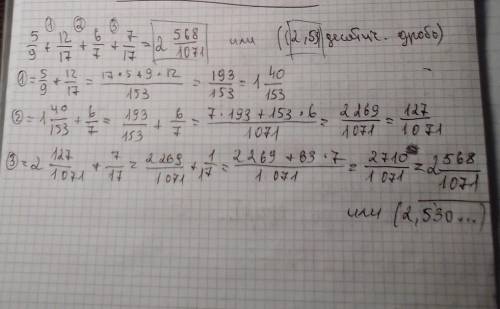 ① ② ③
5/9 + 12/17 + 6/7 + 7/17 = 2 568/1071 или ((2,53) десятич. дробь)
①= 5/9 + 12/17 = (17•5+9•12)/153 = 193/153 = 1 40/153
②= 1 40/153 + 6/7 = 193/153 + 6/7 = (7•193+153•6)/1071 = 2269/1071 = 127/1071
③= 2 127/1071 + 7/17 = 2269/1071 + 1/17 = (2269+63•7)/1071 = 2710/1071 = 2 568/1071
или (2,530...)